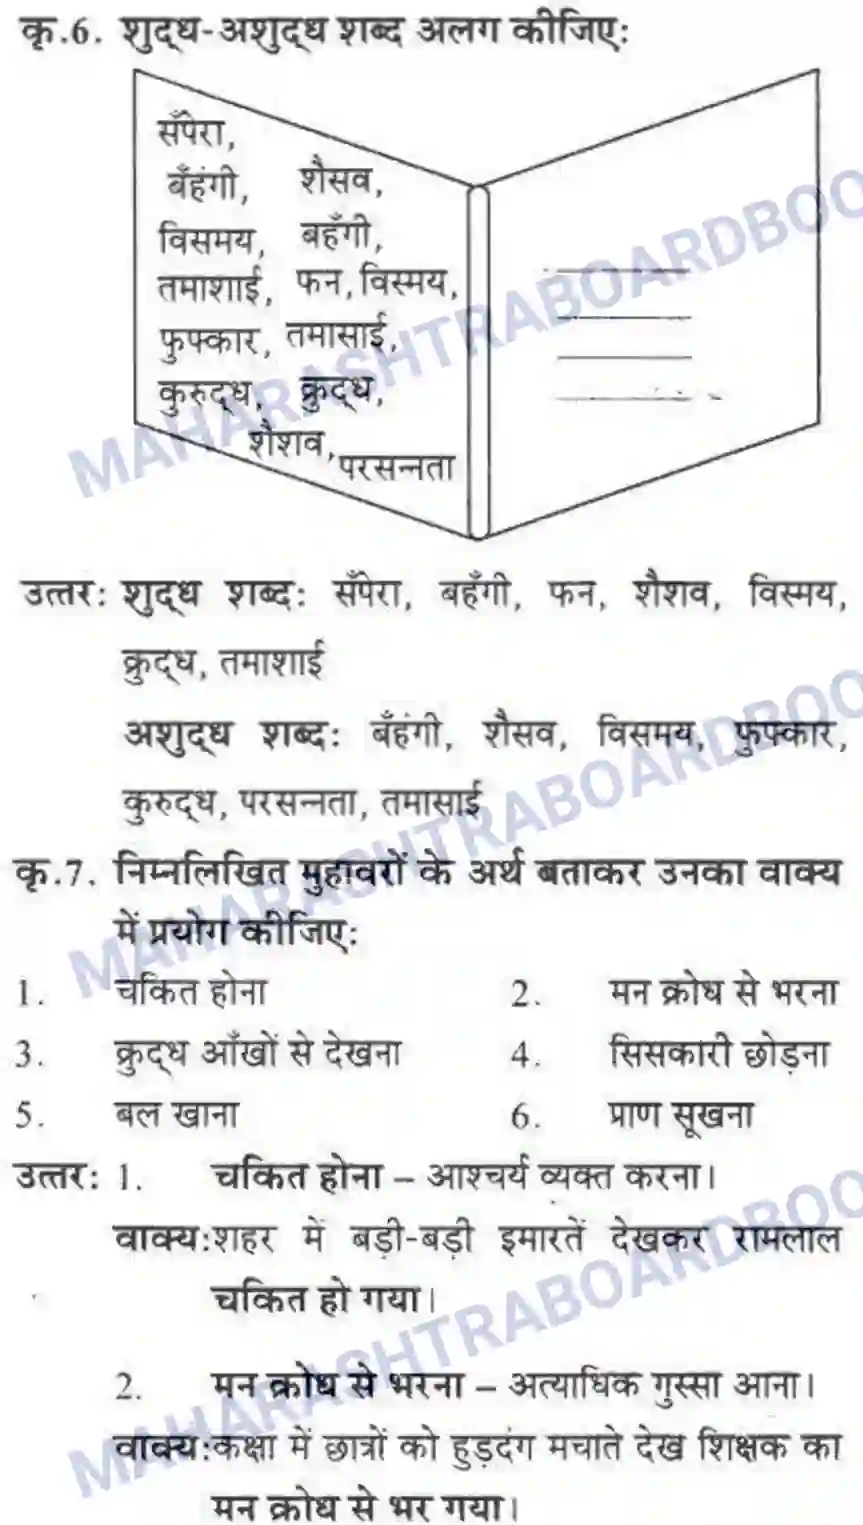 कृ.6. शुद्ध-अशुद्ध शब्द अलग कीजिए:
सँपेरा,
बँहंगी, शैसव,
विसमय, बहँगी,
तमाशाई, फन, विस्मय,
फुफ्कार, तमासाई,
कुरुद्ध, क्रुद्ध,
शैशव, परसन्नता
उत्तर: शुद्ध शब्द: सँपेरा, बहँगी, फन, शैशव, विस्मय,
क्रुद्ध, तमाशाई
अशुद्ध शब्द: बँहंगी, शैसव, विसमय, फुफ्कार,
कुरुद्ध, परसन्नता, तमासाई
कृ.7. निम्नलिखित मुहावरों के अर्थ बताकर उनका वाक्य
में प्रयोग कीजिए:
1. चकित होना 2. मन क्रोध से भरना
3. क्रुद्ध आँखों से देखना 4. सिसकारी छोड़ना
5. बल खाना 6. प्राण सूखना
उत्तर: 1. चकित होना – आश्चर्य व्यक्त करना।
वाक्य: शहर में बड़ी-बड़ी इमारतें देखकर रामलाल
चकित हो गया।
2. मन क्रोध से भरना – अत्याधिक गुस्सा आना।
वाक्य: कक्षा में छात्रों को हुड़दंग मचाते देख शिक्षक का
मन क्रोध से भर गया।
MAHARASHTRABOARDBOO
MAHARASHTRABOARDBOO
MAHARASHTRABOARDBOO